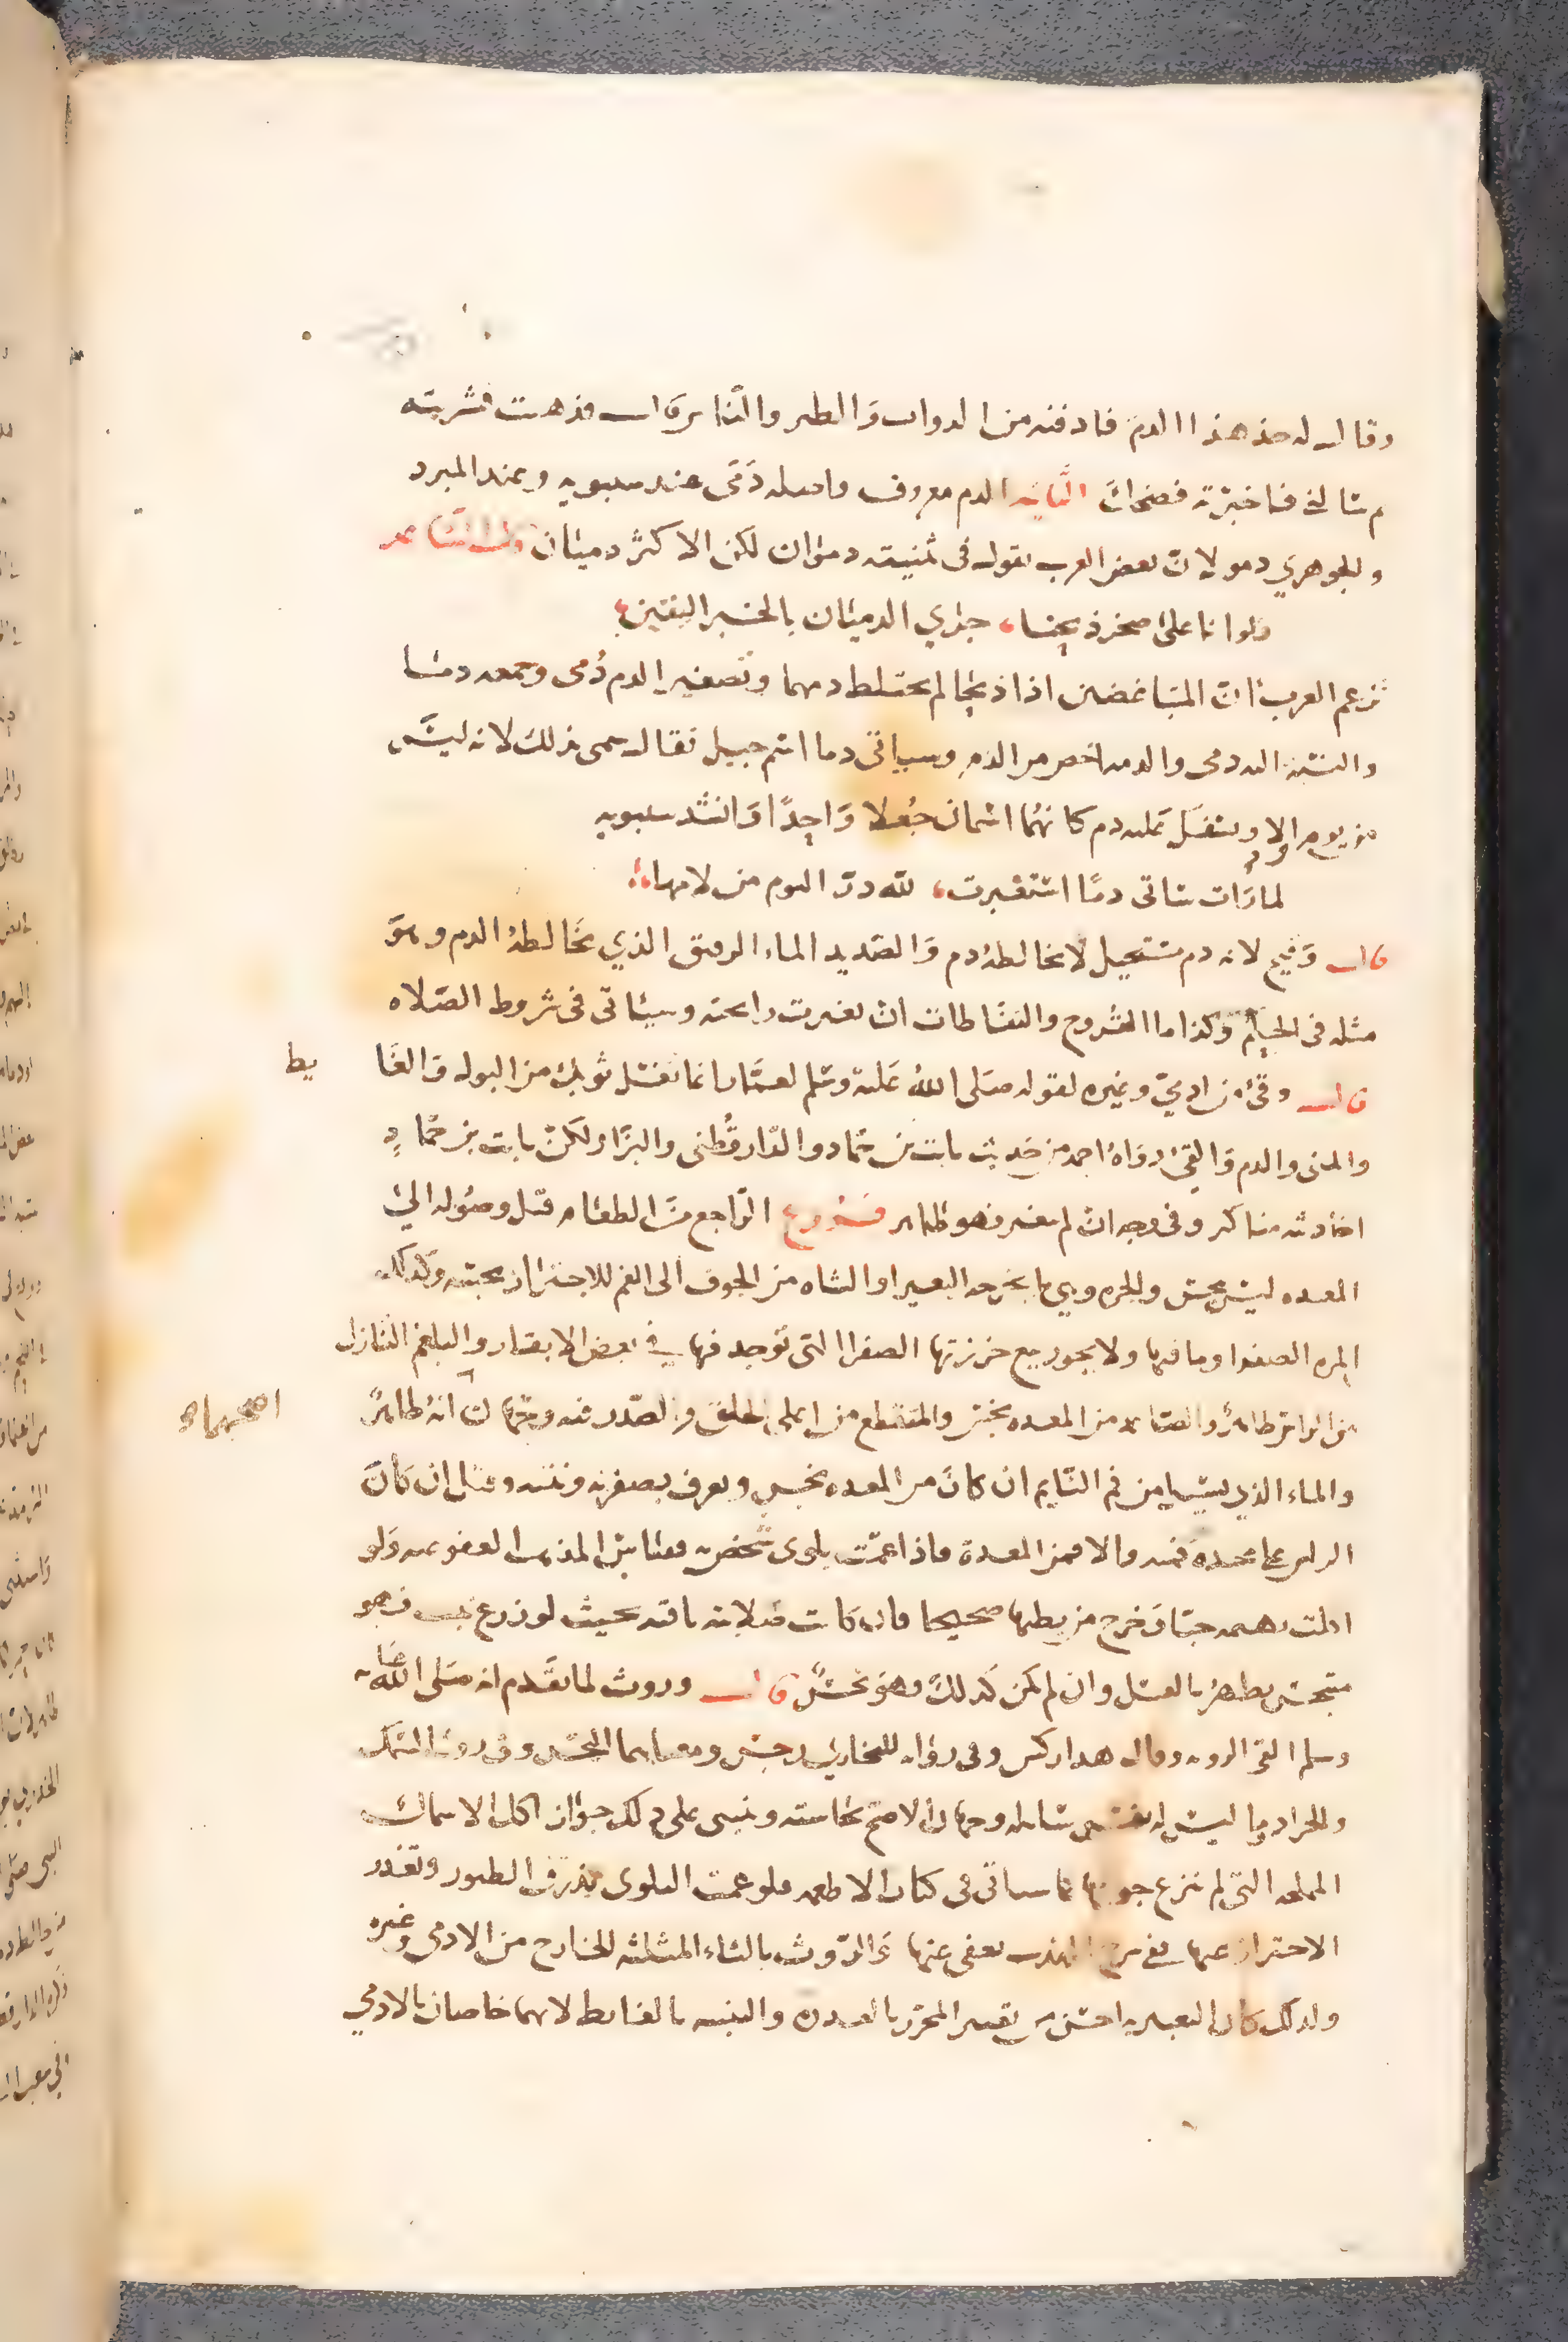 وقال له خذ هذا الدم فادفنه من الدواب والطير والناس قال فذهبت فشربته
ثم سالني فاخبرته فضحك الثانيه الدم معروف واصله دمى عند سيبويه وعند المبرد
والجوهري دمو لان بعض العرب يقول في تثنيته دموان لكن الاكثر دميان قال الشاعر
فلو انا على حجر ذبحنا، جرى الدميان بالخبر اليقين،
تزعم العرب ان المتباغضين اذا ذبحا لم يختلط دمهما وتصغير الدم دمى وجمعه دما
والنسبه اليه دمى والدمه اخص من الدم وسياتى دما اسم جبيل يقال سمى بذلك لانه ليس
من يوم الا ويسفك عليه دم كانهما اسمان جعلا واحدا وانشد سيبويه
لما رات ساتى دما استعبرت، لله در اليوم من لامها،
قال وقيح لانه دم مستحيل لا يخالطه دم والصديد الماء الرقيق الذي يخالطه الدم وهو
مثله في الحكم وكذا ما القروح والنفاطات ان تغيرت رايحته وسياتى فى شروط الصلاه
قال وقيء من ادمي وغيره لقوله صلى الله عليه وسلم لعمار انما تغسل ثوبك من البول والغا يط
والمنى والدم والقيء رواه احمد من حديث ثابت بن حماد والدارقطنى والبزار ولكن ثابت بن حماد
احاديثه مناكر وفى وجه ان لم يتغير فهو طاهر فروع الراجع من الطعام قبل وصوله الى
المعده ليس بنجس والجره وهي ما يخرجه البعير او الشاه من الجوف الى الفم للاجترار نجسه وكذلك
المره الصفرا وما فيها ولا يجوز بيع خرزتها الصفرا التى توجد فيها في بعض الابقار والبلغم النازل
من الراس طاهر والصاعد من المعده نجس والمنقطع من اعلى الحلق والصدر فيه وجهان اصحهما انه طاهر
والماء الذي يسيل من فم النايم ان كان من المعده نجس ويعرف بصفرته ونتنه وقيل ان كان
الراس على مخده فمنه والا فمن المعدة فاذا عمت بلوى شخص به فقياس المذهب العفو عنه ولو
اكلت بهيمه حبا فخرج من بطنها صحيحا فان كانت صلابته باقيه بحيث لو زرع نبت فهو
متنجس يطهر بالغسل وان لم يكن كذلك فهو نجس قال وروث لما تقدم انه صلى الله عليه
وسلم القى الروثه وقال هذا ركس وفى روايه للبخاري رجس ومعناهما النجس وفى روث السمك
والجراد وما ليس له نفس سائله وجهان الاصح نجاسته وينبنى على ذلك جواز اكل الاسماك
المملحه التى لم ينزع جوفها كما سياتى فى كتاب الاطعمه فلو عمت البلوى بذرق الطيور وتعذر
الاحتراز عنها ففي شرح المهذب يعفى عنها والروث بالثاء المثلثه الخارج من الادمى وغيره
ولذلك كان التعبير به احسن من تعبير المحرر بالعذره والتنبيه بالغايط لانهما خاصان بالادمي